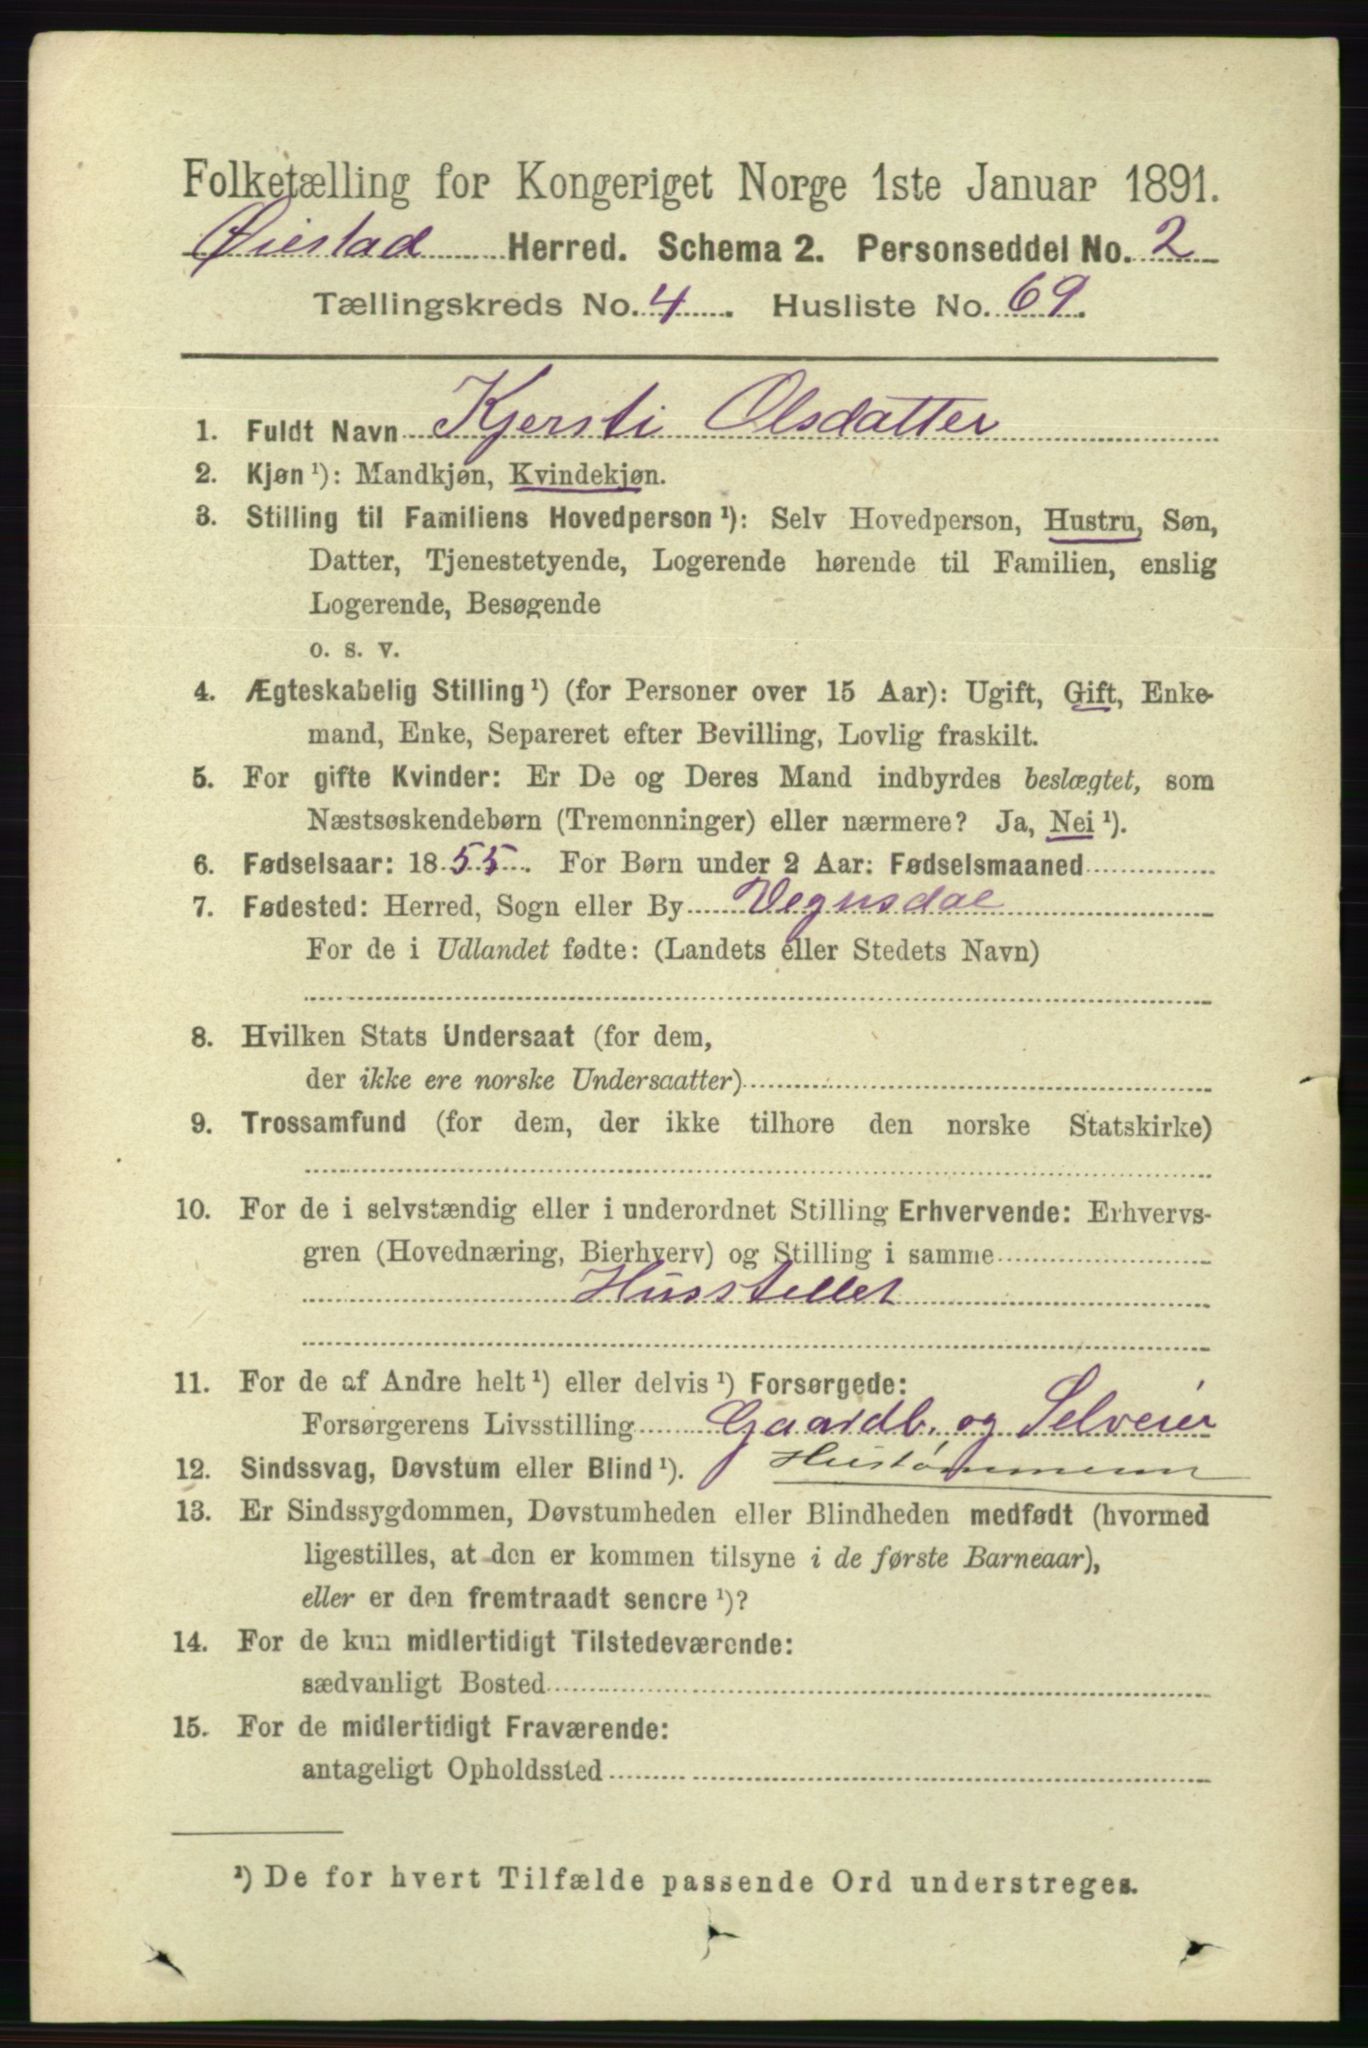 Folketælling for Kongeriget Norge 1ste Januar 1891.
Øiestad Herred. Schema 2. Personseddel No. 2
Tællingskreds No. 4. Husliste No. 69.
1. Fuldt Navn Kjersti Olsdatter
2. Kjøn ¹): Mandkjøn, Kvindekjøn.
3. Stilling til Familiens Hovedperson ¹): Selv Hovedperson, Hustru, Søn,
Datter, Tjenestetyende, Logerende hørende til Familien, enslig
Logerende, Besøgende
o. s. v.
4. Ægteskabelig Stilling ¹) (for Personer over 15 Aar): Ugift, Gift, Enke-
mand, Enke, Separeret efter Bevilling, Lovlig fraskilt.
5. For gifte Kvinder: Er De og Deres Mand indbyrdes beslægtet, som
Næstsøskendebørn (Tremenninger) eller nærmere? Ja, Nei ¹).
6. Fødselsaar: 1855. For Børn under 2 Aar: Fødselsmaaned
7. Fødested: Herred, Sogn eller By Vegusdal
For de i Udlandet fødte: (Landets eller Stedets Navn)
8. Hvilken Stats Undersaat (for dem,
der ikke ere norske Undersaatter)
9. Trossamfund (for dem, der ikke tilhøre den norske Statskirke)
10. For de i selvstændig eller i underordnet Stilling Erhvervende: Erhvervs-
gren (Hovednæring, Bierhverv) og Stilling i samme
Husstellet
11. For de af Andre helt ¹) eller delvis ¹) Forsørgede:
Forsørgerens Livsstilling Gaardb. og Selveier
12. Sindssvag, Døvstum eller Blind ¹). Hustømmerm
13. Er Sindssygdommen, Døvstumheden eller Blindheden medfødt (hvormed
ligestilles, at den er kommen tilsyne i de første Barneaar),
eller er den fremtraadt senere ¹)?
14. For de kun midlertidigt Tilstedeværende:
sædvanligt Bosted
15. For de midlertidigt Fraværende:
antageligt Opholdssted
¹) De for hvert Tilfælde passende Ord understreges.